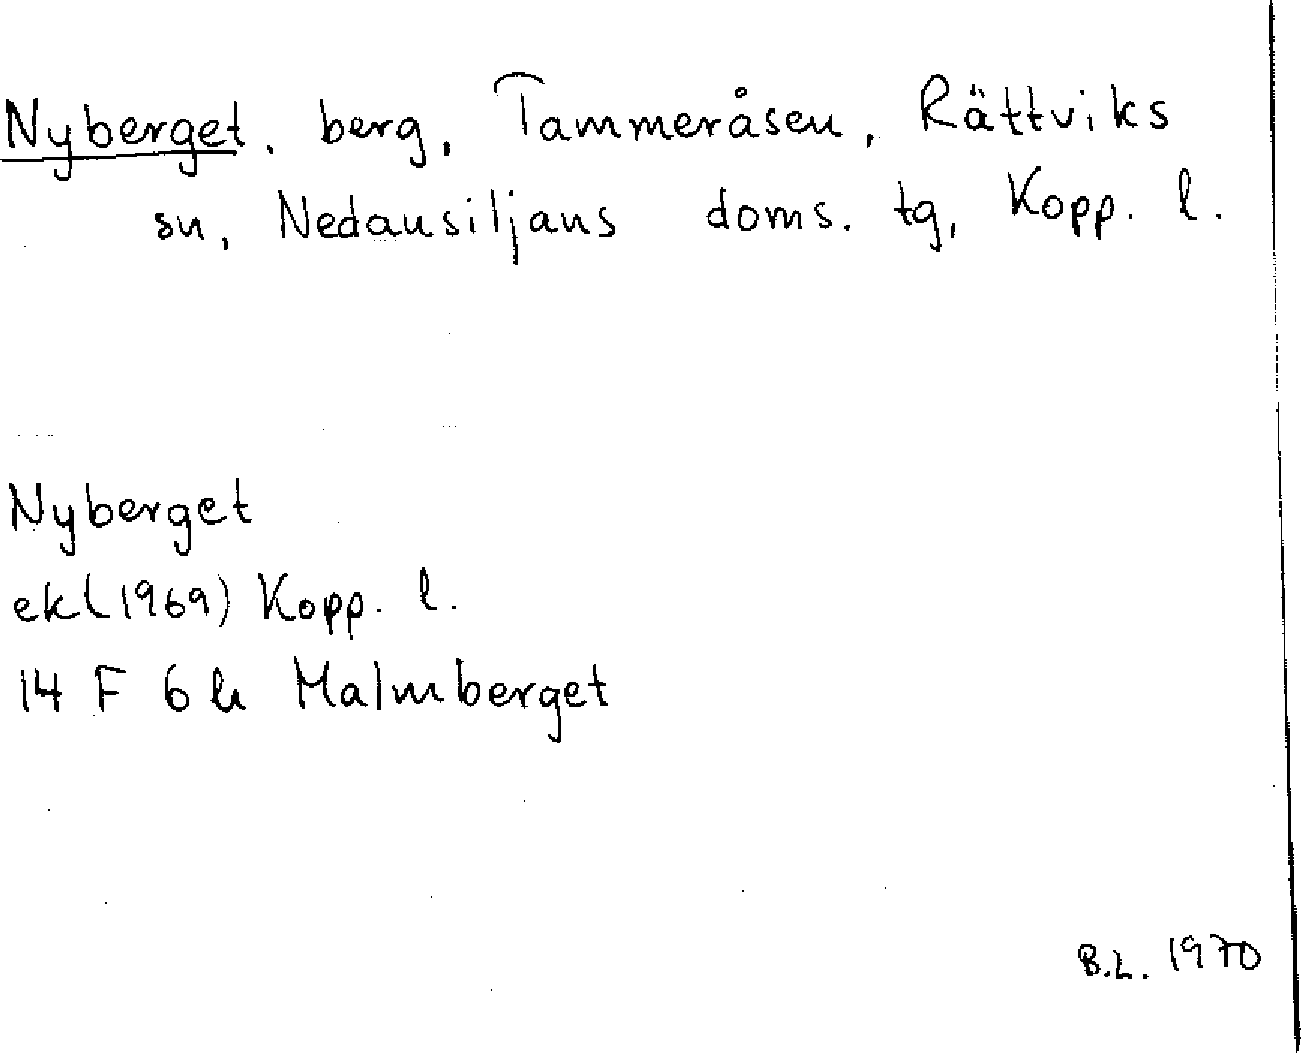 Nyberget, berg, Tammeråsen, Rättviks
sn, Nedansiljans doms. tg, Kopp. l.
Nyberget
ekl(1969) Kopp. l.
14 F 6 h Malmberget
B.L. 1970